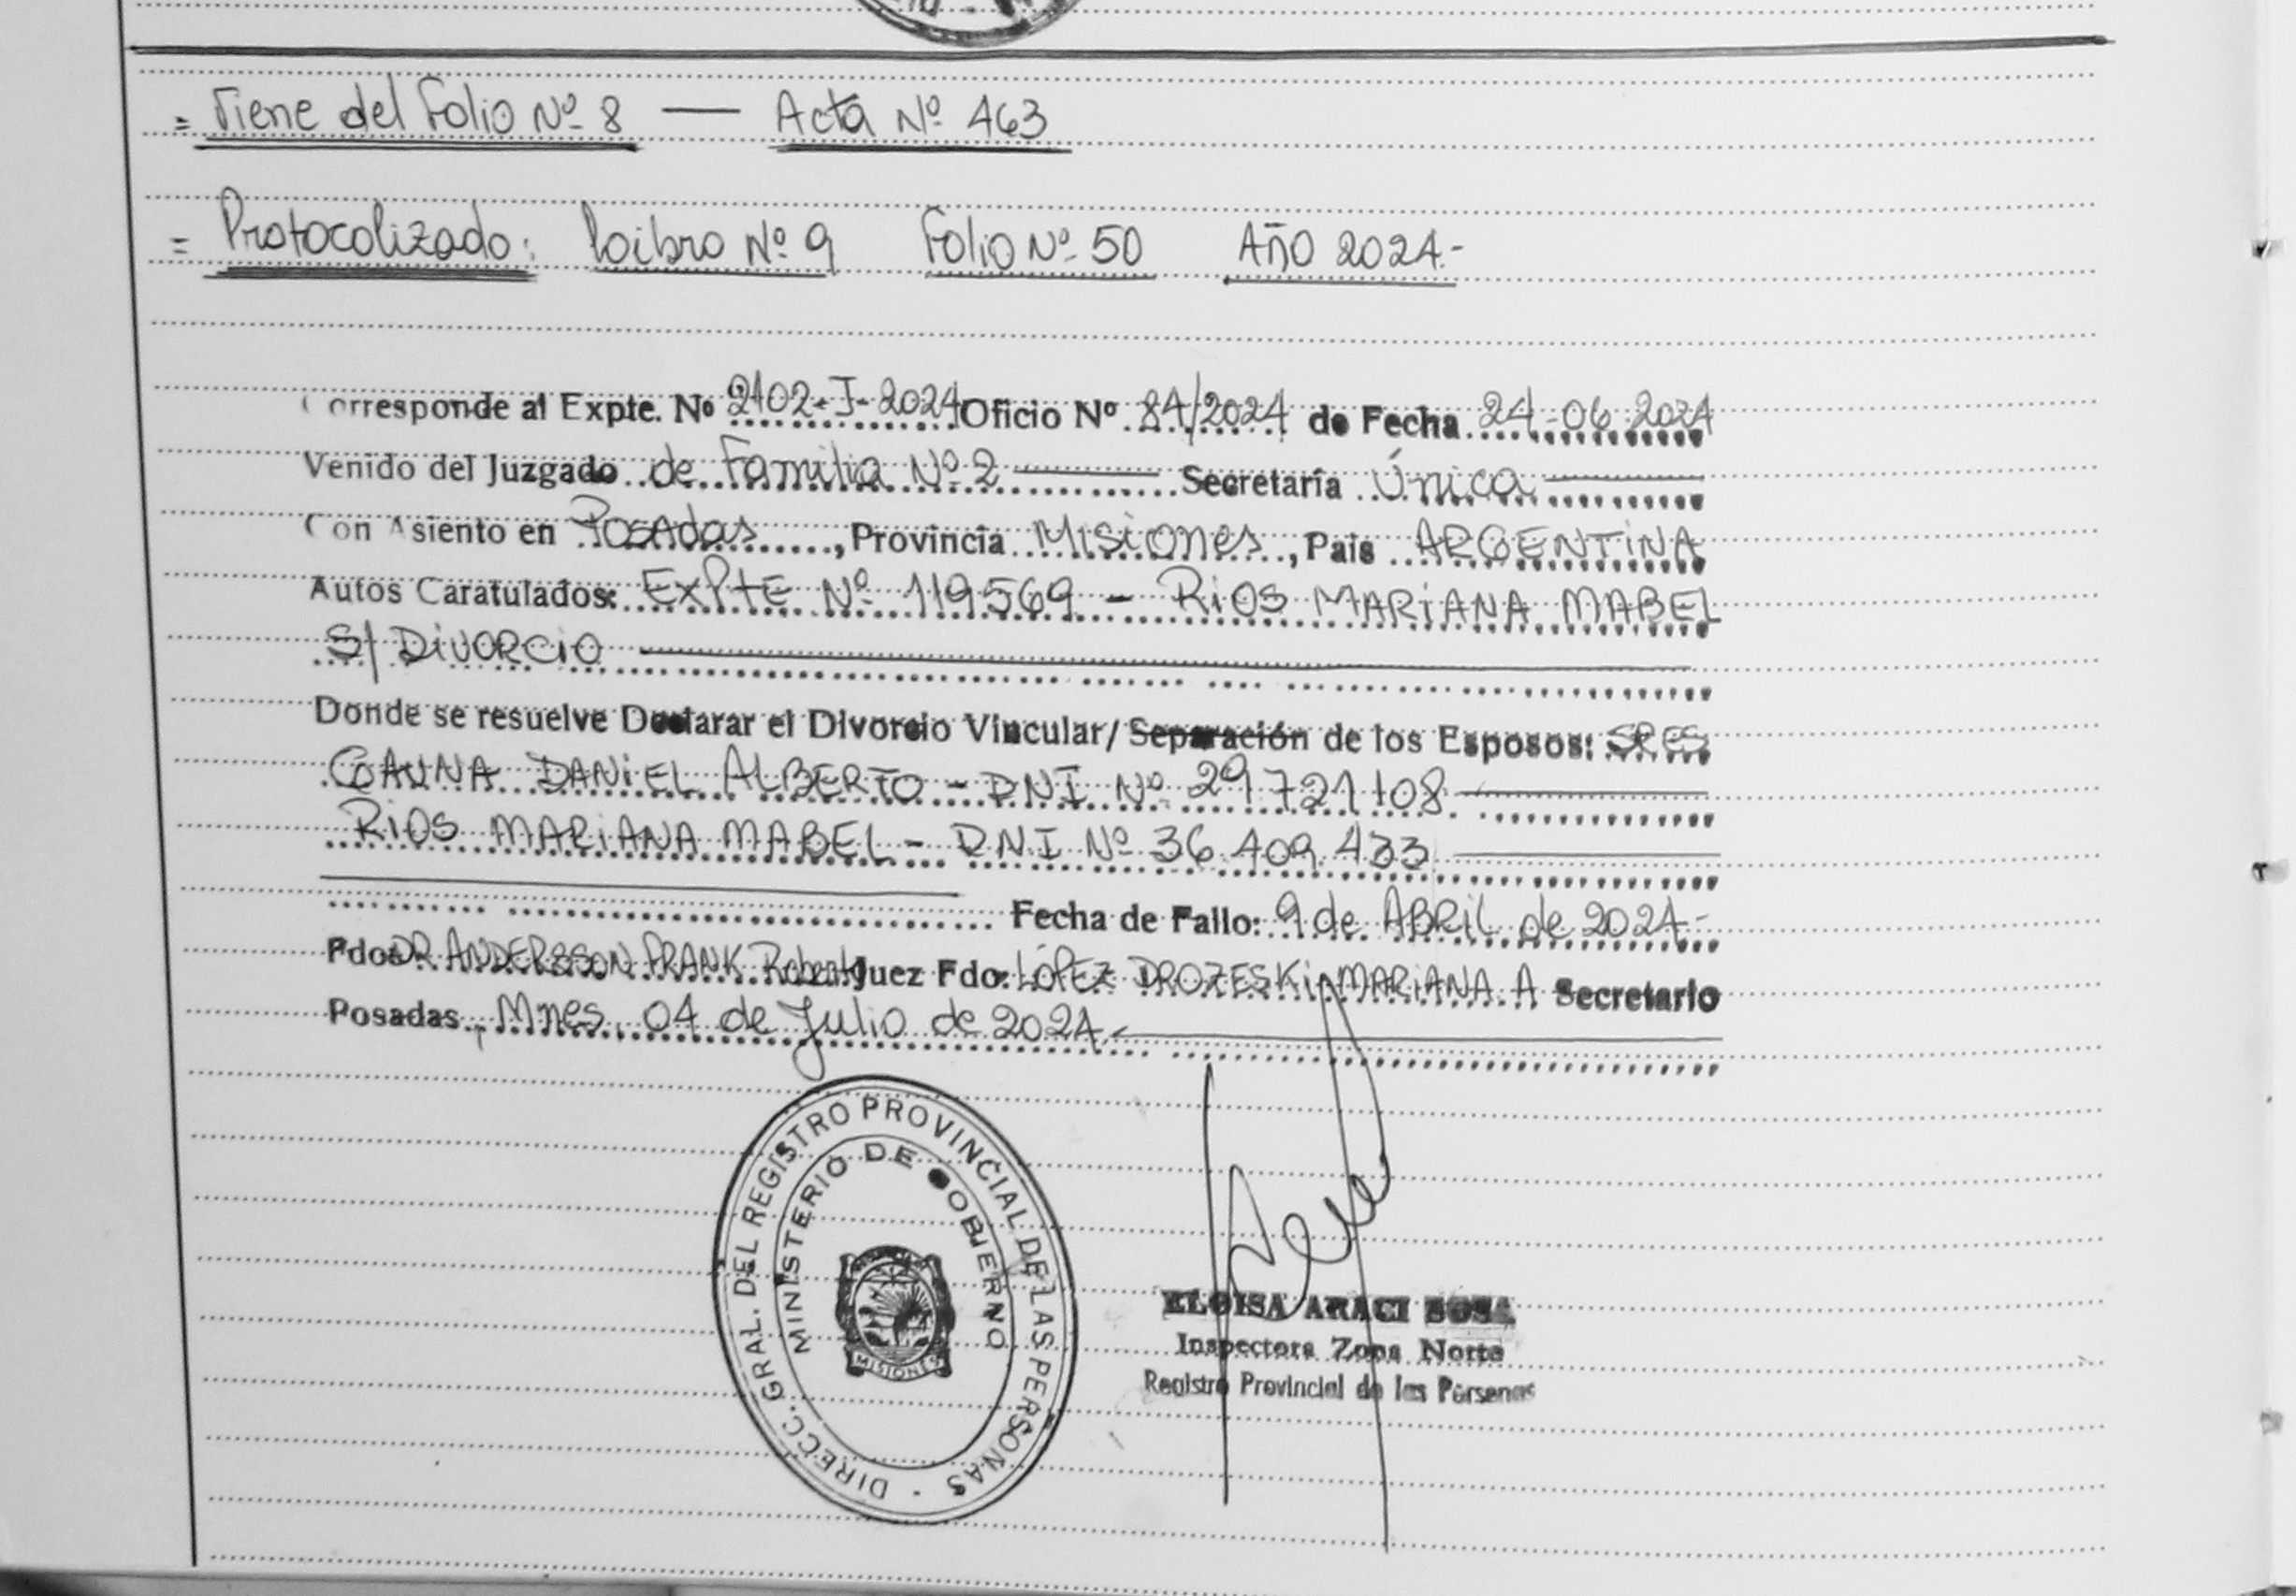 = Viene del Folio Nº 8 — Acta Nº 463
= Protocolizado: Libro Nº 9 Folio Nº 50 Año 2024.-
Corresponde al Expte. Nº 2102-I-2024 Oficio Nº 84/2024 de Fecha 24-06-2024
Venido del Juzgado de Familia Nº 2 Secretaría Única
Con Asiento en Posadas, Provincia Misiones, Pais ARGENTINA
Autos Caratulados: ExPtE Nº 119569 - RiOS MARiANA MABEL
S/ DiVORCiO
Donde se resuelve Declarar el Divorcio Vincular/ Separación de los Esposos: SRES
DANiEL ALBERTO - DNI Nº 29721108
RiOS MARiANA MABEL - DNI Nº 36.409.433
Fecha de Fallo: 9 de ABRiL de 2024-
Fdo: DR ANDERSSON FRANK Roberto Juez Fdo: LÓPEZ DROZESKi MARiANA A Secretario
Posadas, Mnes, 04 de Julio de 2024.-
DIRECC. GRAL. DEL REGISTRO PROVINCIAL DE LAS PERSONAS
MINISTERIO DE GOBIERNO
MISIONES
ELOISA ARACI SOSA
Inspectora Zona Norte
Registro Provincial de las Personas